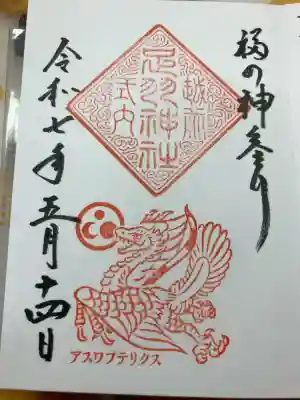 福の神参り
越前
足羽神社
式内
令和七年五月十四日
アスワプテリクス